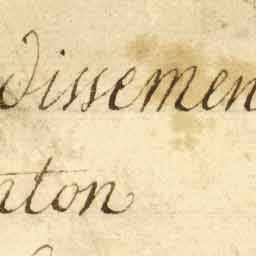 dissemen
aton